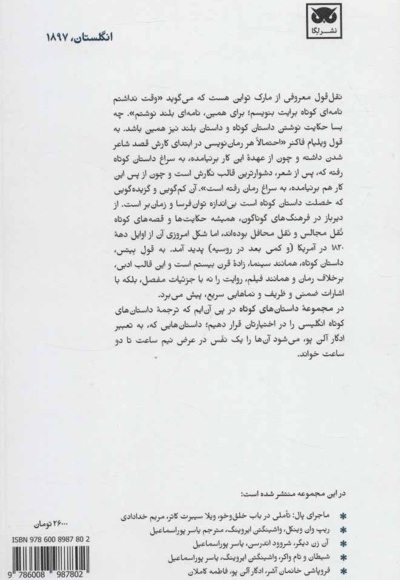 نشر لگا
انگلستان، ۱۸۹۷
نقل‌قول معروفی از مارک تواین هست که می‌گوید «وقت نداشتم
نامه‌ای کوتاه برایت بنویسم؛ برای همین، نامه‌ای بلند نوشتم». چه
بسا حکایت نوشتنِ داستان کوتاه و داستان بلند نیز همین باشد. به
قول ویلیام فاکنر «احتمالاً هر رمان‌نویسی در ابتدای کارش قصد شاعر
شدن داشته و چون از عهدهٔ این کار برنیامده، به سراغ داستان کوتاه
رفته که، پس از شعر، دشوارترین قالب نگارش است و چون از پس این
کار هم برنیامده، به سراغ رمان رفته است». آن کم‌گویی و گزیده‌گویی
که خصلت داستان کوتاه است بی‌اندازه توان‌فرسا و زمان‌بر است. از
دیرباز در فرهنگ‌های گوناگون، همیشه حکایت‌ها و قصه‌های کوتاه
نُقل مجالس و نقل محافل بوده‌اند، اما شکل امروزی آن از اوایل دههٔ
۱۸۲۰ در آمریکا (و کمی بعد در روسیه) پدید آمد. به قول بیتس،
داستان کوتاه، همانند سینما، زادهٔ قرن بیستم است و این قالب ادبی،
برخلاف رمان و همانند فیلم، روایت را نه با جزئیات مفصل، بلکه با
اشارات ضمنی و ظریف و نماهایی سریع، پیش می‌برد.
در مجموعهٔ داستان‌های کوتاه در پی آن‌ایم که ترجمهٔ داستان‌های
کوتاه انگلیسی را در اختیارتان قرار دهیم؛ داستان‌هایی که، به تعبیر
ادگار آلن پو، می‌شود آن‌ها را یک نفس در عرض نیم ساعت تا دو
ساعت خواند.
در این مجموعه منتشر شده است:
* ماجرای پال: تأملی در باب خلق‌وخو، ویلا سیبرت کاتر، مریم خدادادی
* ریپ وان وینکل، واشینگتن ایروینگ، مترجم یاسر پوراسماعیل
* آن زن دیگر، شروود اندرسن، یاسر پوراسماعیل
* شیطان و تام واکر، واشینگتن ایروینگ، یاسر پوراسماعیل
* فروپاشی خاندان آشر، ادگار آلن پو، فاطمه کاملان
۲۶۰۰۰ تومان
ISBN 978 600 8987 80 2
9 786008 987802